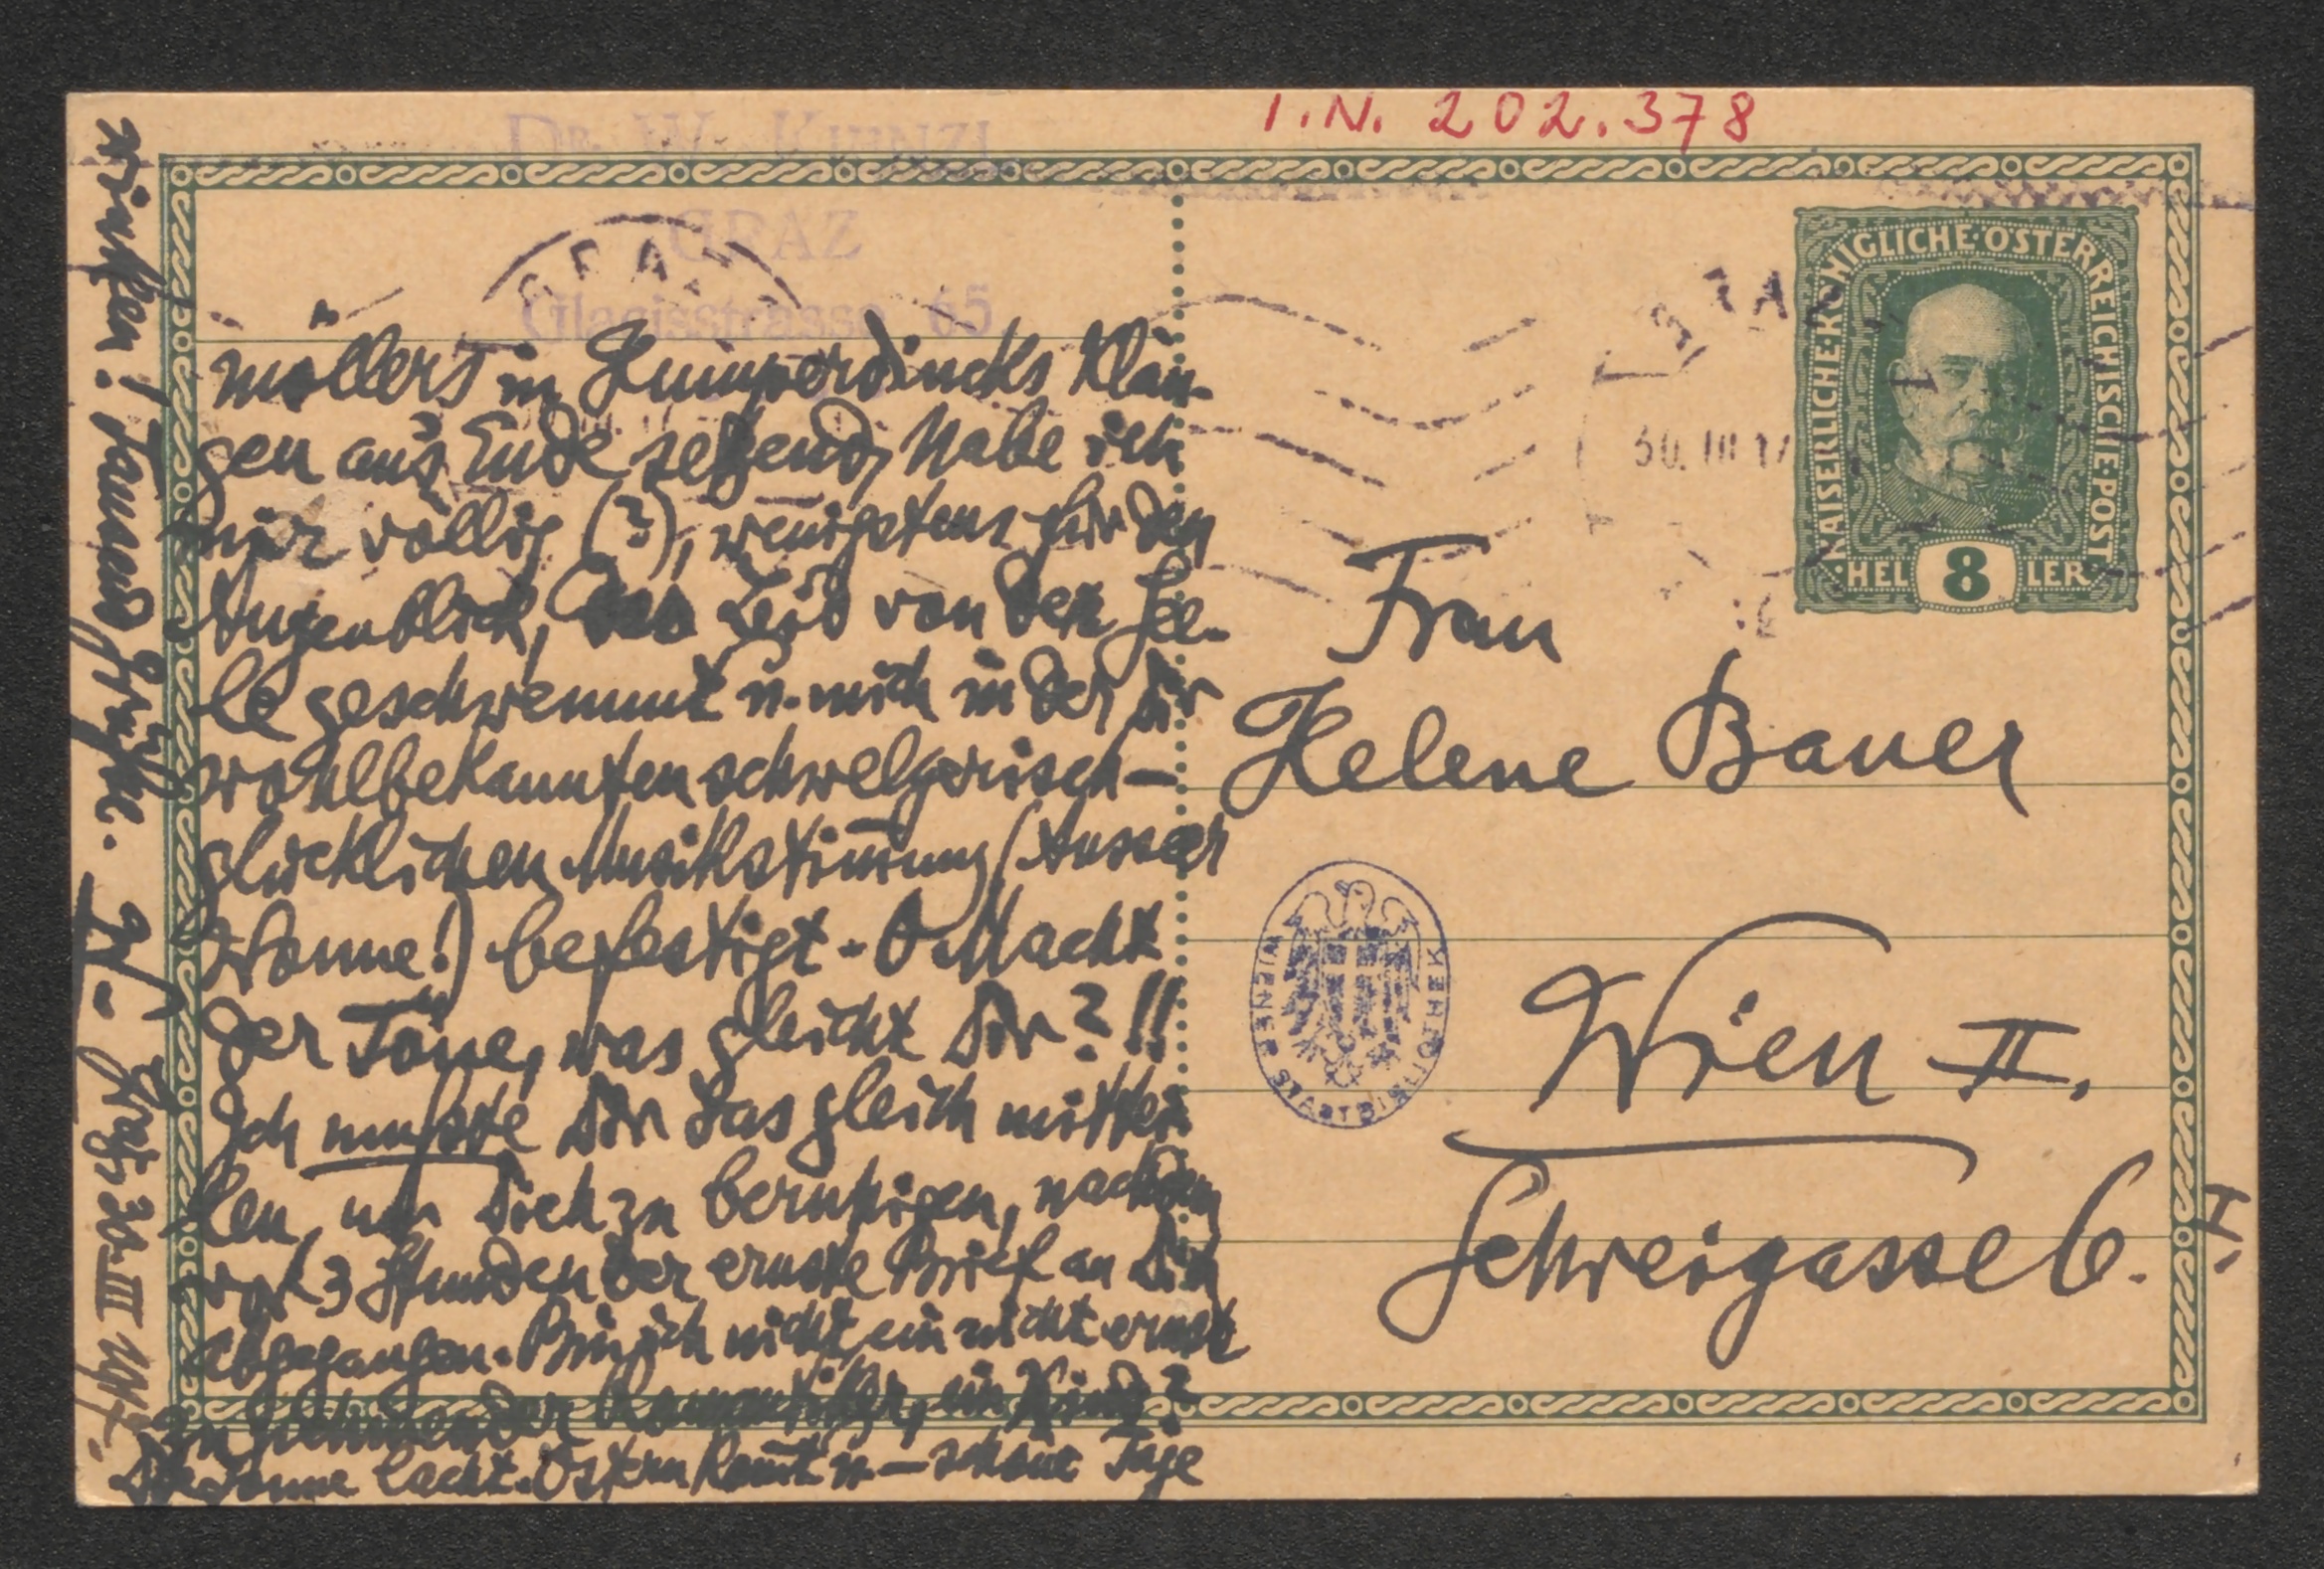 I.N. 202.378
Dr. W. Kienzl
GRAZ
Glacisstrasse 65.
GRAZ
GRAZ
30. III 17
KAISERLICHE·KÖNIGLICHE·ÖSTERREICHISCHE·POST
8 HELLER
möllers in Humperdincks Klän-
gen aus Ende setzend, habe ich
mir völlig (?), wenigstens für den
Augenblick, das Leid von der See-
le geschwemmt u. mich in der Dir
wohlbekannten schwelgerisch–
glücklichen Musikstim̄ung (Ausser
Wonne!) befestigt. O Macht
der Töne, was gleicht Dir?!!
Ich musste Dir das gleich mittei-
len, um Dich zu beruhigen, nachdem
vor 3 Stunden der ernste Brief an Dich
abgegangen. Bin ich nicht ein nicht ernst
zu nehmender Romantiker, ein Kind?
Die Sonne lacht. Ostern kom̄t u. – schöne Tage
winken! Tausend Grüße. W– Graz, 30. III 1917.
Frau
Helene Bauer
Wien II.
Schreigasse 6.
I.
WIENER STADTBIBLIOTHEK